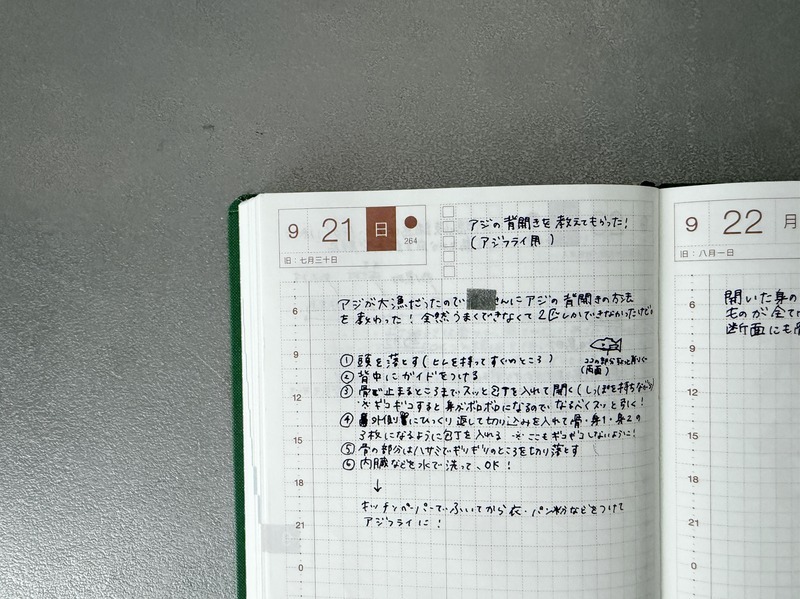 9 21 日
264
旧:七月三十日
アジの背開きを教えてもらった!
(アジフライ用)
アジが大漁だったので さんにアジの背開きの方法
を教わった!全然うまくできなくて2匹しかできなかったけど。
① 頭を落とす(ヒレを持ってすぐのところ)
② 背中にガイドをつける
ココの部分
(両面)
③ 骨で止まるところまでスッと包丁を入れて開く(しっぽを持ちながら)
※ギコギコすると身がボロボロになるのでなるべくスッと引く!
④ 外側にひっくり返して切り込みを入れて骨・身1・身2の
3枚になるように包丁を入れる ※ここもギコギコしないように!
⑤ 骨の部分はハサミでギリギリのところを切り落とす
⑥ 内臓などを水で洗って、OK!
↓
キッチンペーパーでふいてから衣・パン粉などをつけて
アジフライに!
6
9
12
15
18
21
0
9 22 月
旧:八月一日
開いた身の
ものが全て
断面にも
6
9
12
15
18
21
0